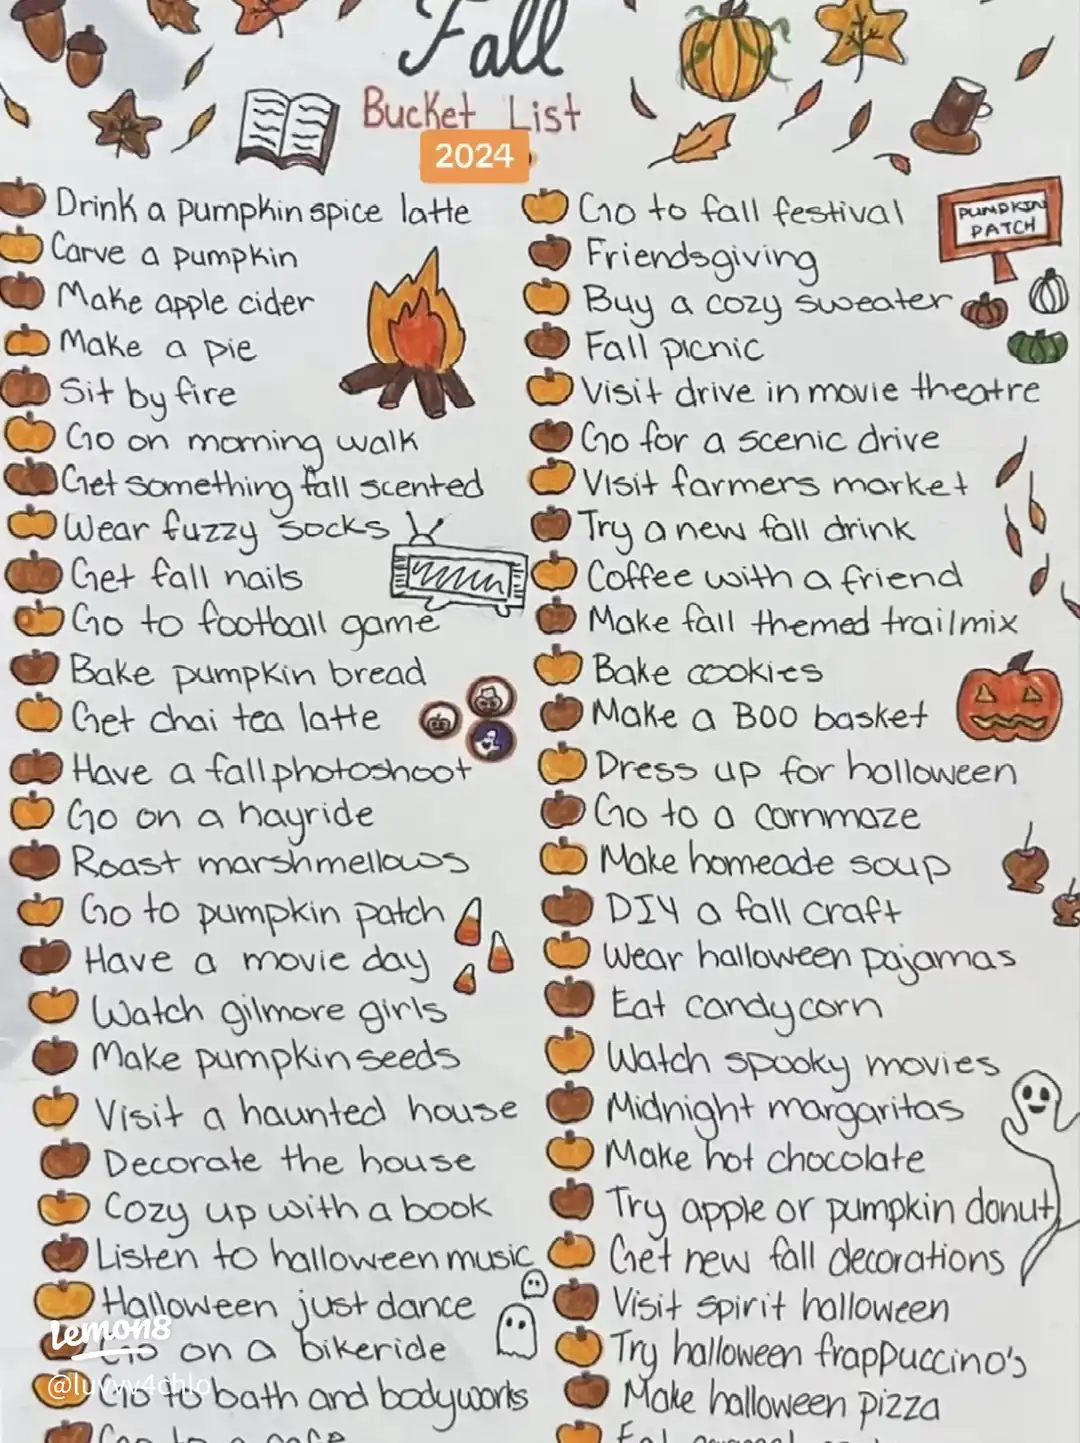 Fall
Bucket List
2024
Drink a pumpkin spice latte
Carve a pumpkin
Make apple cider
Make a pie
Sit by fire
Go on morning walk
Get something fall scented
Wear fuzzy socks
Get fall nails
Go to football game
Bake pumpkin bread
Get chai tea latte
Have a fall photoshoot
Go on a hayride
Roast marshmellows
Go to pumpkin patch
Have a movie day
Watch gilmore girls
Make pumpkin seeds
Visit a haunted house
Decorate the house
Cozy up with a book
Listen to halloween music
Halloween just dance
Go on a bikeride
Go to bath and bodyworks
Go to a cafe
Go to fall festival
Friendsgiving
Buy a cozy sweater
Fall picnic
Visit drive in movie theatre
Go for a scenic drive
Visit farmers market
Try a new fall drink
Coffee with a friend
Make fall themed trailmix
Bake cookies
Make a BOO basket
Dress up for halloween
Go to a cornmaze
Make homeade soup
DIY a fall craft
Wear halloween pajamas
Eat candycorn
Watch spooky movies
Midnight margaritas
Make hot chocolate
Try apple or pumpkin donut
Get new fall decorations
Visit spirit halloween
Try halloween frappuccino's
Make halloween pizza
Eat
PUMPKIN
PATCH
lemon8
@luvvv4chlo